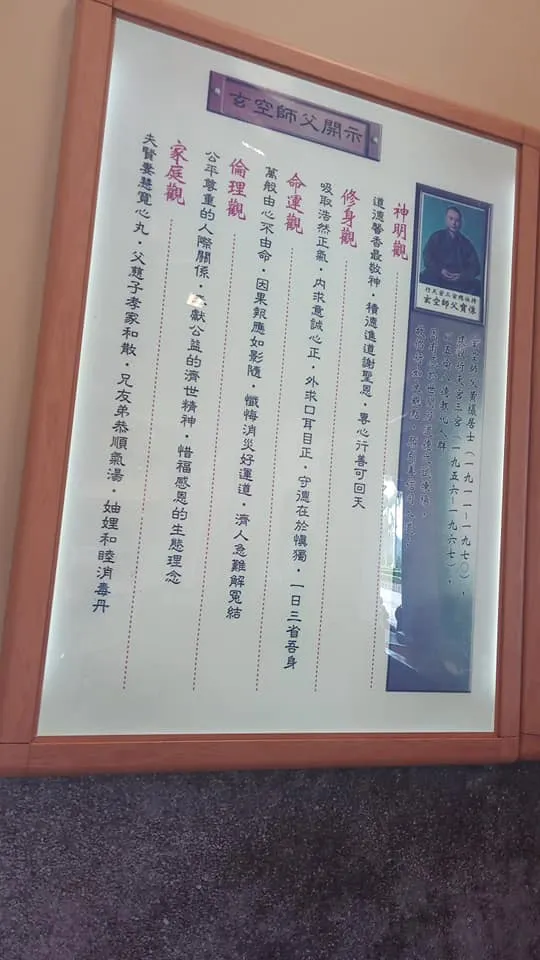 玄空師父開示
玄空師父寶像
玄空師父黃欉居士（一九一一~一九七〇），
行天宮三宮（一九五六~一九六七），
神明觀
道德馨香最敬神．積德進道謝聖恩．專心行善可回天
修身觀
吸取浩然正氣．內求意誠心正．外求口耳目正．守德在於慎獨．一日三省吾身
命運觀
萬般由心不由命．因果報應如影隨．懺悔消災好運道．濟人急難解冤結
倫理觀
公平尊重的人際關係．獻公益的濟世精神．惜福感恩的生態理念
家庭觀
夫賢妻慧寬心丸．父慈子孝家和散．兄友弟恭順氣湯．妯娌和睦消毒丹